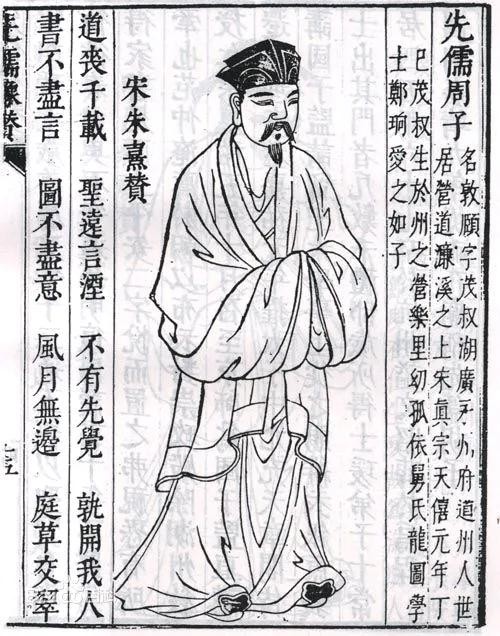 先儒周子
名敦頤字茂叔湖廣永州府道州人世
居營道濂溪之上宋真宗天僖元年丁
巳茂叔生於州之營樂里幼孤依舅氏龍圖學
士鄭珦愛之如子
宋朱熹贊
道喪千載 聖遠言湮 不有先覺 孰開我人
書不盡言 圖不盡意 風月無邊 庭草交翠